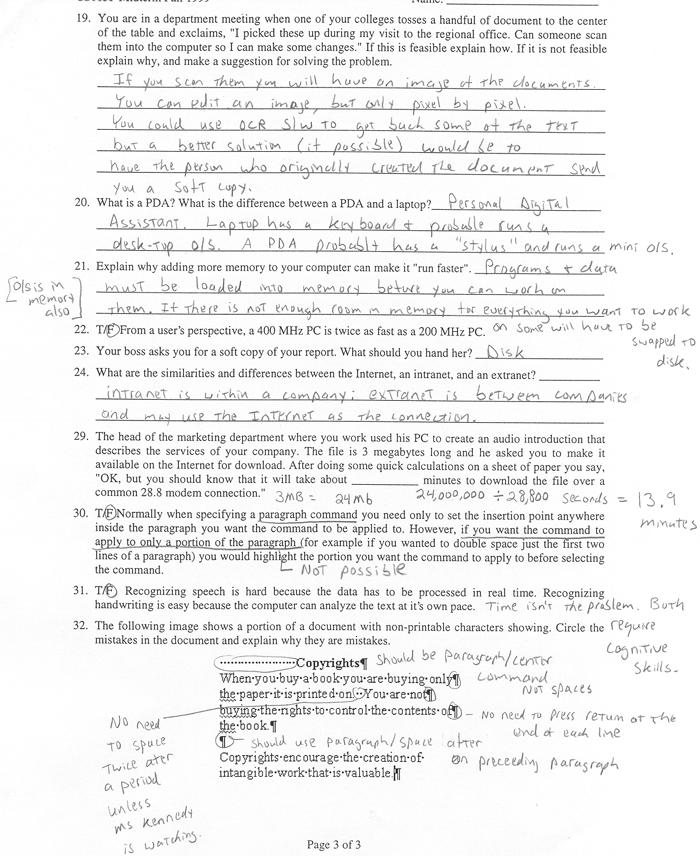 Name:
19. You are in a department meeting when one of your colleges tosses a handful of document to the center
of the table and exclaims, "I picked these up during my visit to the regional office. Can someone scan
them into the computer so I can make some changes." If this is feasible explain how. If it is not feasible
explain why, and make a suggestion for solving the problem.
If you scan them you will have an image of the documents.
You can edit an image, but only pixel by pixel.
You could use OCR S/W to get back some of the text
but a better solution (if possible) would be to
have the person who originally created the document send
you a soft copy.
20. What is a PDA? What is the difference between a PDA and a laptop? Personal Digital
Assistant. Laptop has a keyboard + probable runs a
desk-top O/S. A PDA probablt has a "stylus" and runs a mini O/S.
21. Explain why adding more memory to your computer can make it "run faster". Programs + data
O/S is in
memory
also
must be loaded into memory before you can work on
them. If there is not enough room in memory for everything you want to work
22. T/F From a user's perspective, a 400 MHz PC is twice as fast as a 200 MHz PC. on some will have to be
swapped to
disk.
23. Your boss asks you for a soft copy of your report. What should you hand her? Disk
24. What are the similarities and differences between the Internet, an intranet, and an extranet?
intranet is within a company; extranet is between companies
and may use the Internet as the connection.
29. The head of the marketing department where you work used his PC to create an audio introduction that
describes the services of your company. The file is 3 megabytes long and he asked you to make it
available on the Internet for download. After doing some quick calculations on a sheet of paper you say,
"OK, but you should know that it will take about ________ minutes to download the file over a
common 28.8 modem connection." 3MB = 24Mb 24,000,000 ÷ 28,800 seconds = 13.9
minutes
30. T/F Normally when specifying a paragraph command you need only to set the insertion point anywhere
inside the paragraph you want the command to be applied to. However, if you want the command to
apply to only a portion of the paragraph (for example if you wanted to double space just the first two
lines of a paragraph) you would highlight the portion you want the command to apply to before selecting
the command. Not possible
31. T/F Recognizing speech is hard because the data has to be processed in real time. Recognizing
handwriting is easy because the computer can analyze the text at it's own pace. Time isn't the problem. Both
require
cognitive
skills.
32. The following image shows a portion of a document with non-printable characters showing. Circle the
mistakes in the document and explain why they are mistakes.
····················Copyrights¶ should be paragraph/center
command
not spaces
When·you·buy·a·book·you·are·buying·only¶
the·paper·it·is·printed·on.··You·are·not¶
buying·the·rights·to·control·the·contents·of¶ - No need to press return at the
end of each line
the·book.¶
¶ - should use paragraph/space after
on preceeding paragraph
Copyrights·encourage·the·creation·of·
intangible·work·that·is·valuable.¶
No need
to space
twice ater
a period
unless
ms kennedy
is watching.
Page 3 of 3